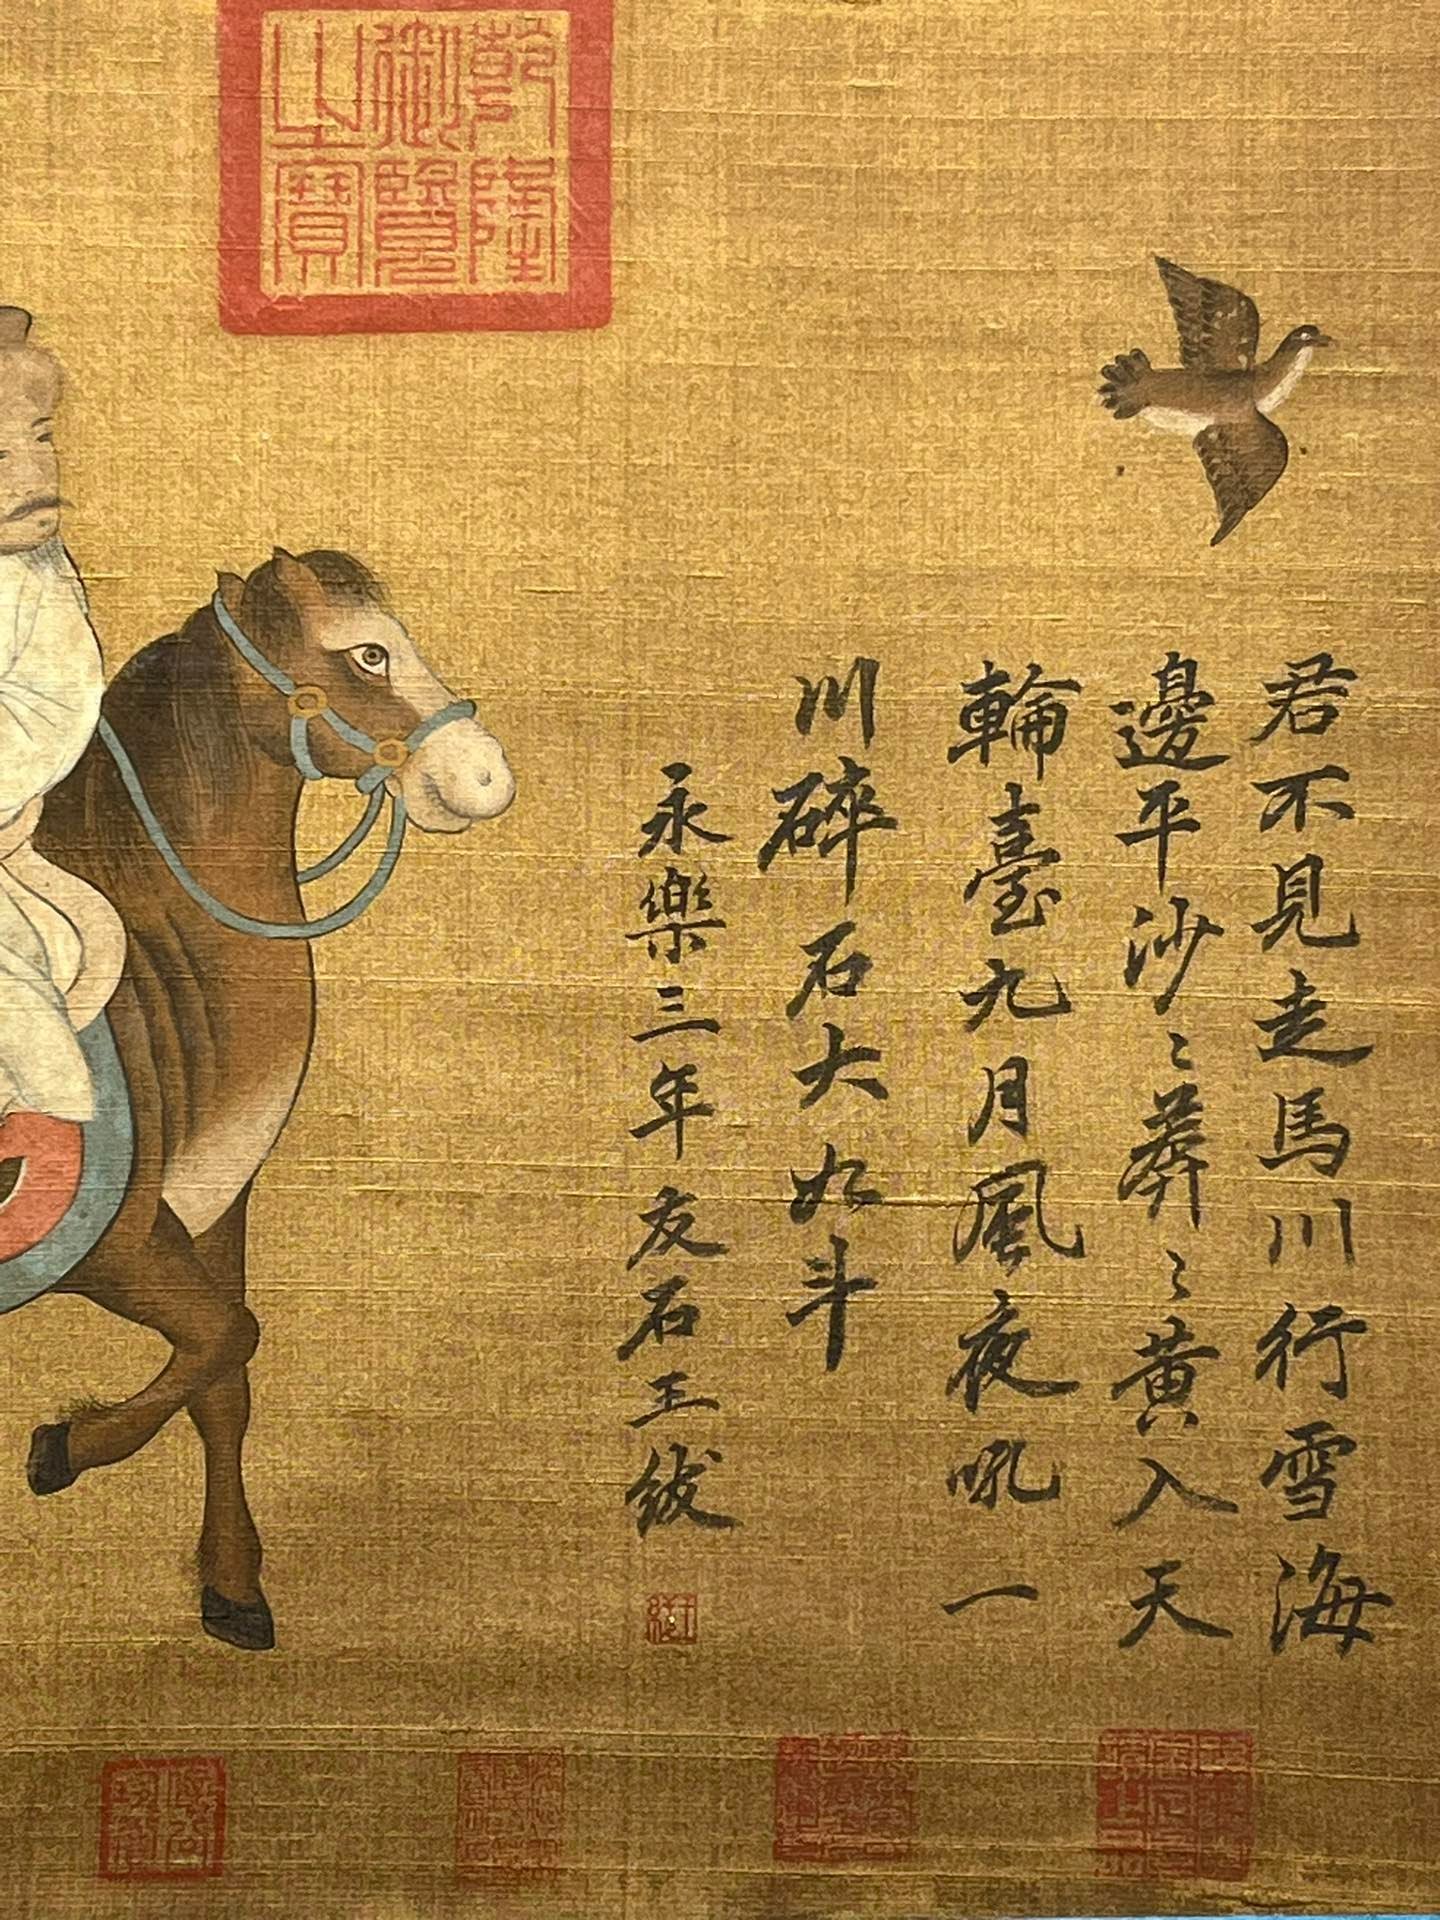 君不見走馬川行雪海
邊平沙〻莽〻黃入天
輪臺九月風夜吼一
川碎石大如斗
永樂三年友石王紱
乾隆
御覽
之寶